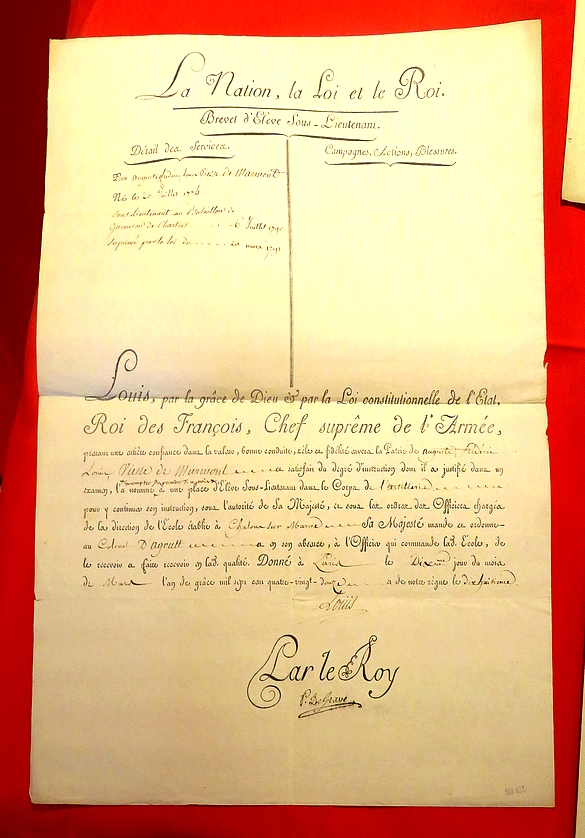 La Nation, la Loi et le Roi.
Brevet d'Elève Sous-Lieutenant.
Détail des Services.
Campagnes, Actions, Blessures.
Viesse de Marmont
Né le 20 Juillet 1774
Sous-lieutenant au Bataillon de
Garnison de Chartres 6 Juillet 1790
Suprimé par la loi du 20 mars 1791
Louis, par la grâce de Dieu & par la Loi constitutionnelle de l'Etat,
Roi des François, Chef suprême de l'Armée,
prenant une entière confiance dans la valeur, bonne conduite, zèle et fidélité envers la Patrie de Auguste Frédéric
Louis Viesse de Marmont a satisfait du degré d'instruction dont il a justifié dans un
examen, l'a nommé à une place d'Elève Sous-Lieutenant dans le Corps de l'artillerie
pour y continuer son instruction, sous l'autorité de Sa Majesté, et sous les ordres des Officiers chargés
de la direction de l'Ecole établie à Chalons sur Marne Sa Majesté mande et ordonne
au Colonel D'agoult et en son absence, à l'Officier qui commande lad. Ecole, de
le recevoir et faire recevoir en lad. qualité. Donné à Paris le Dix jour du mois
de Mars l'an de grâce mil sept cent quatre-vingt-Douze et de notre règne le dixhuitieme
Louis
Par le Roy
P. De Grave